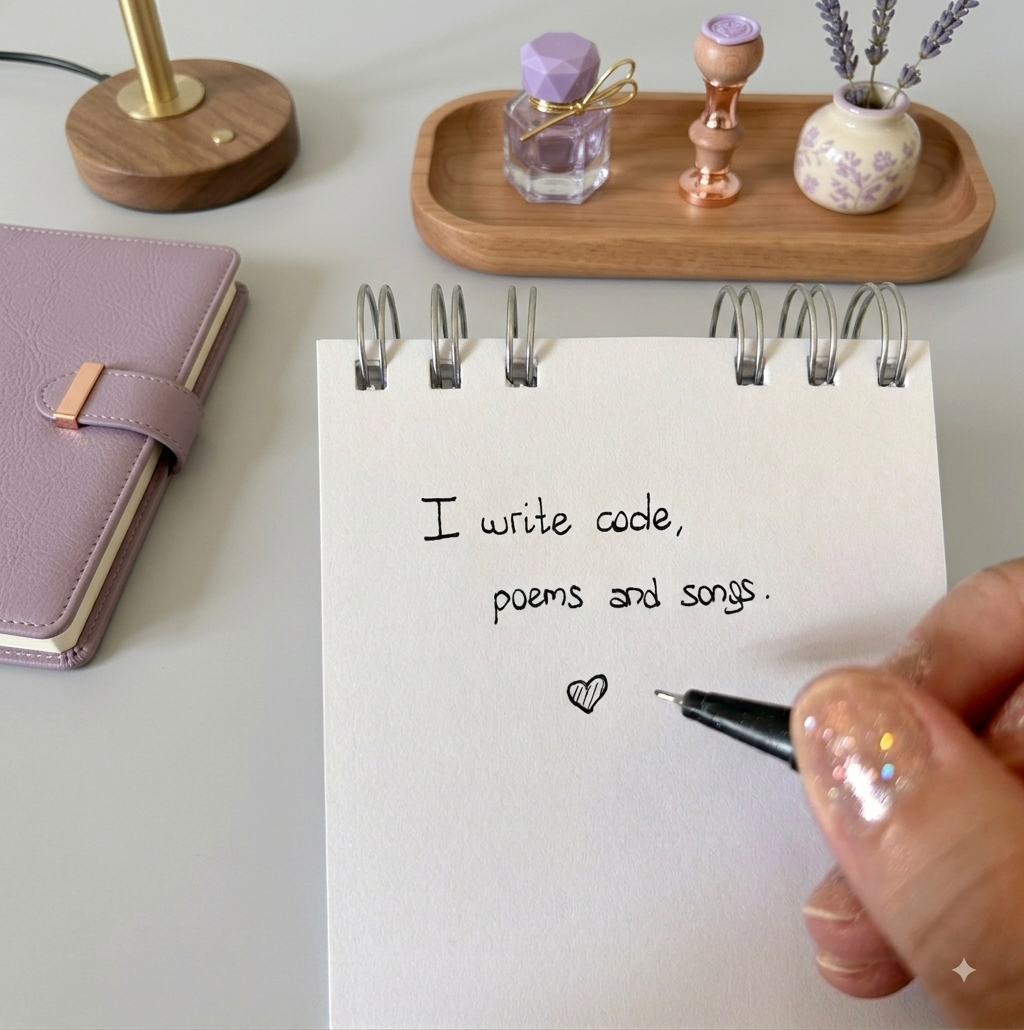 I write code,
poems and songs.